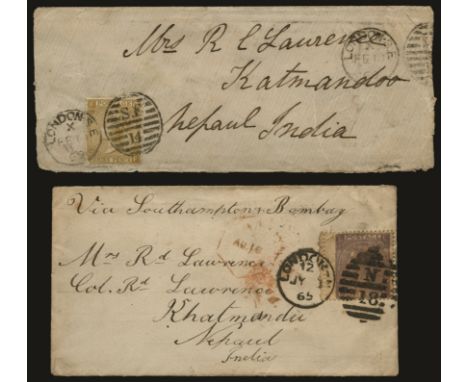 Mrs R C Laurence
Katmandoo
Nepaul India
LONDON S.E
X
LONDON S.E
X
Via Southampton & Bombay
Mrs Rd Lawrence
Col. Rd Lawrence
Khatmandu
Nepaul
India
LONDON
12
JY
65
N
18